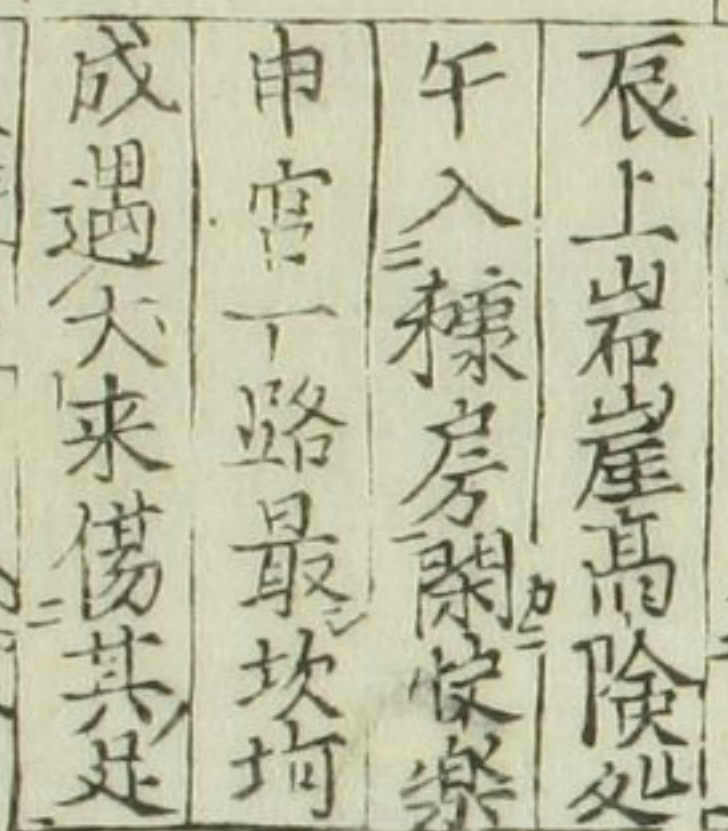 辰上岩崖高険処
午入糠房閑快楽
申宮一路最坎坷
戌遇犬来傷其足